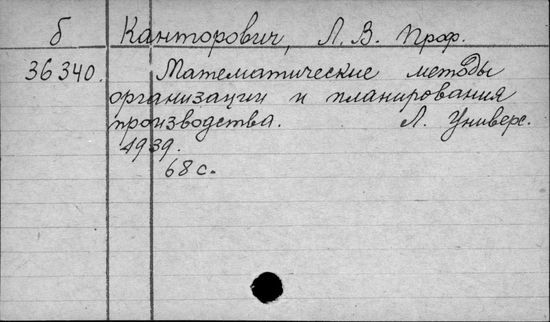 б Канторович, Л. В. Проф.
36340. Математические методы
организации и планирования
производства. Л. Универс.
1939.
68 с.